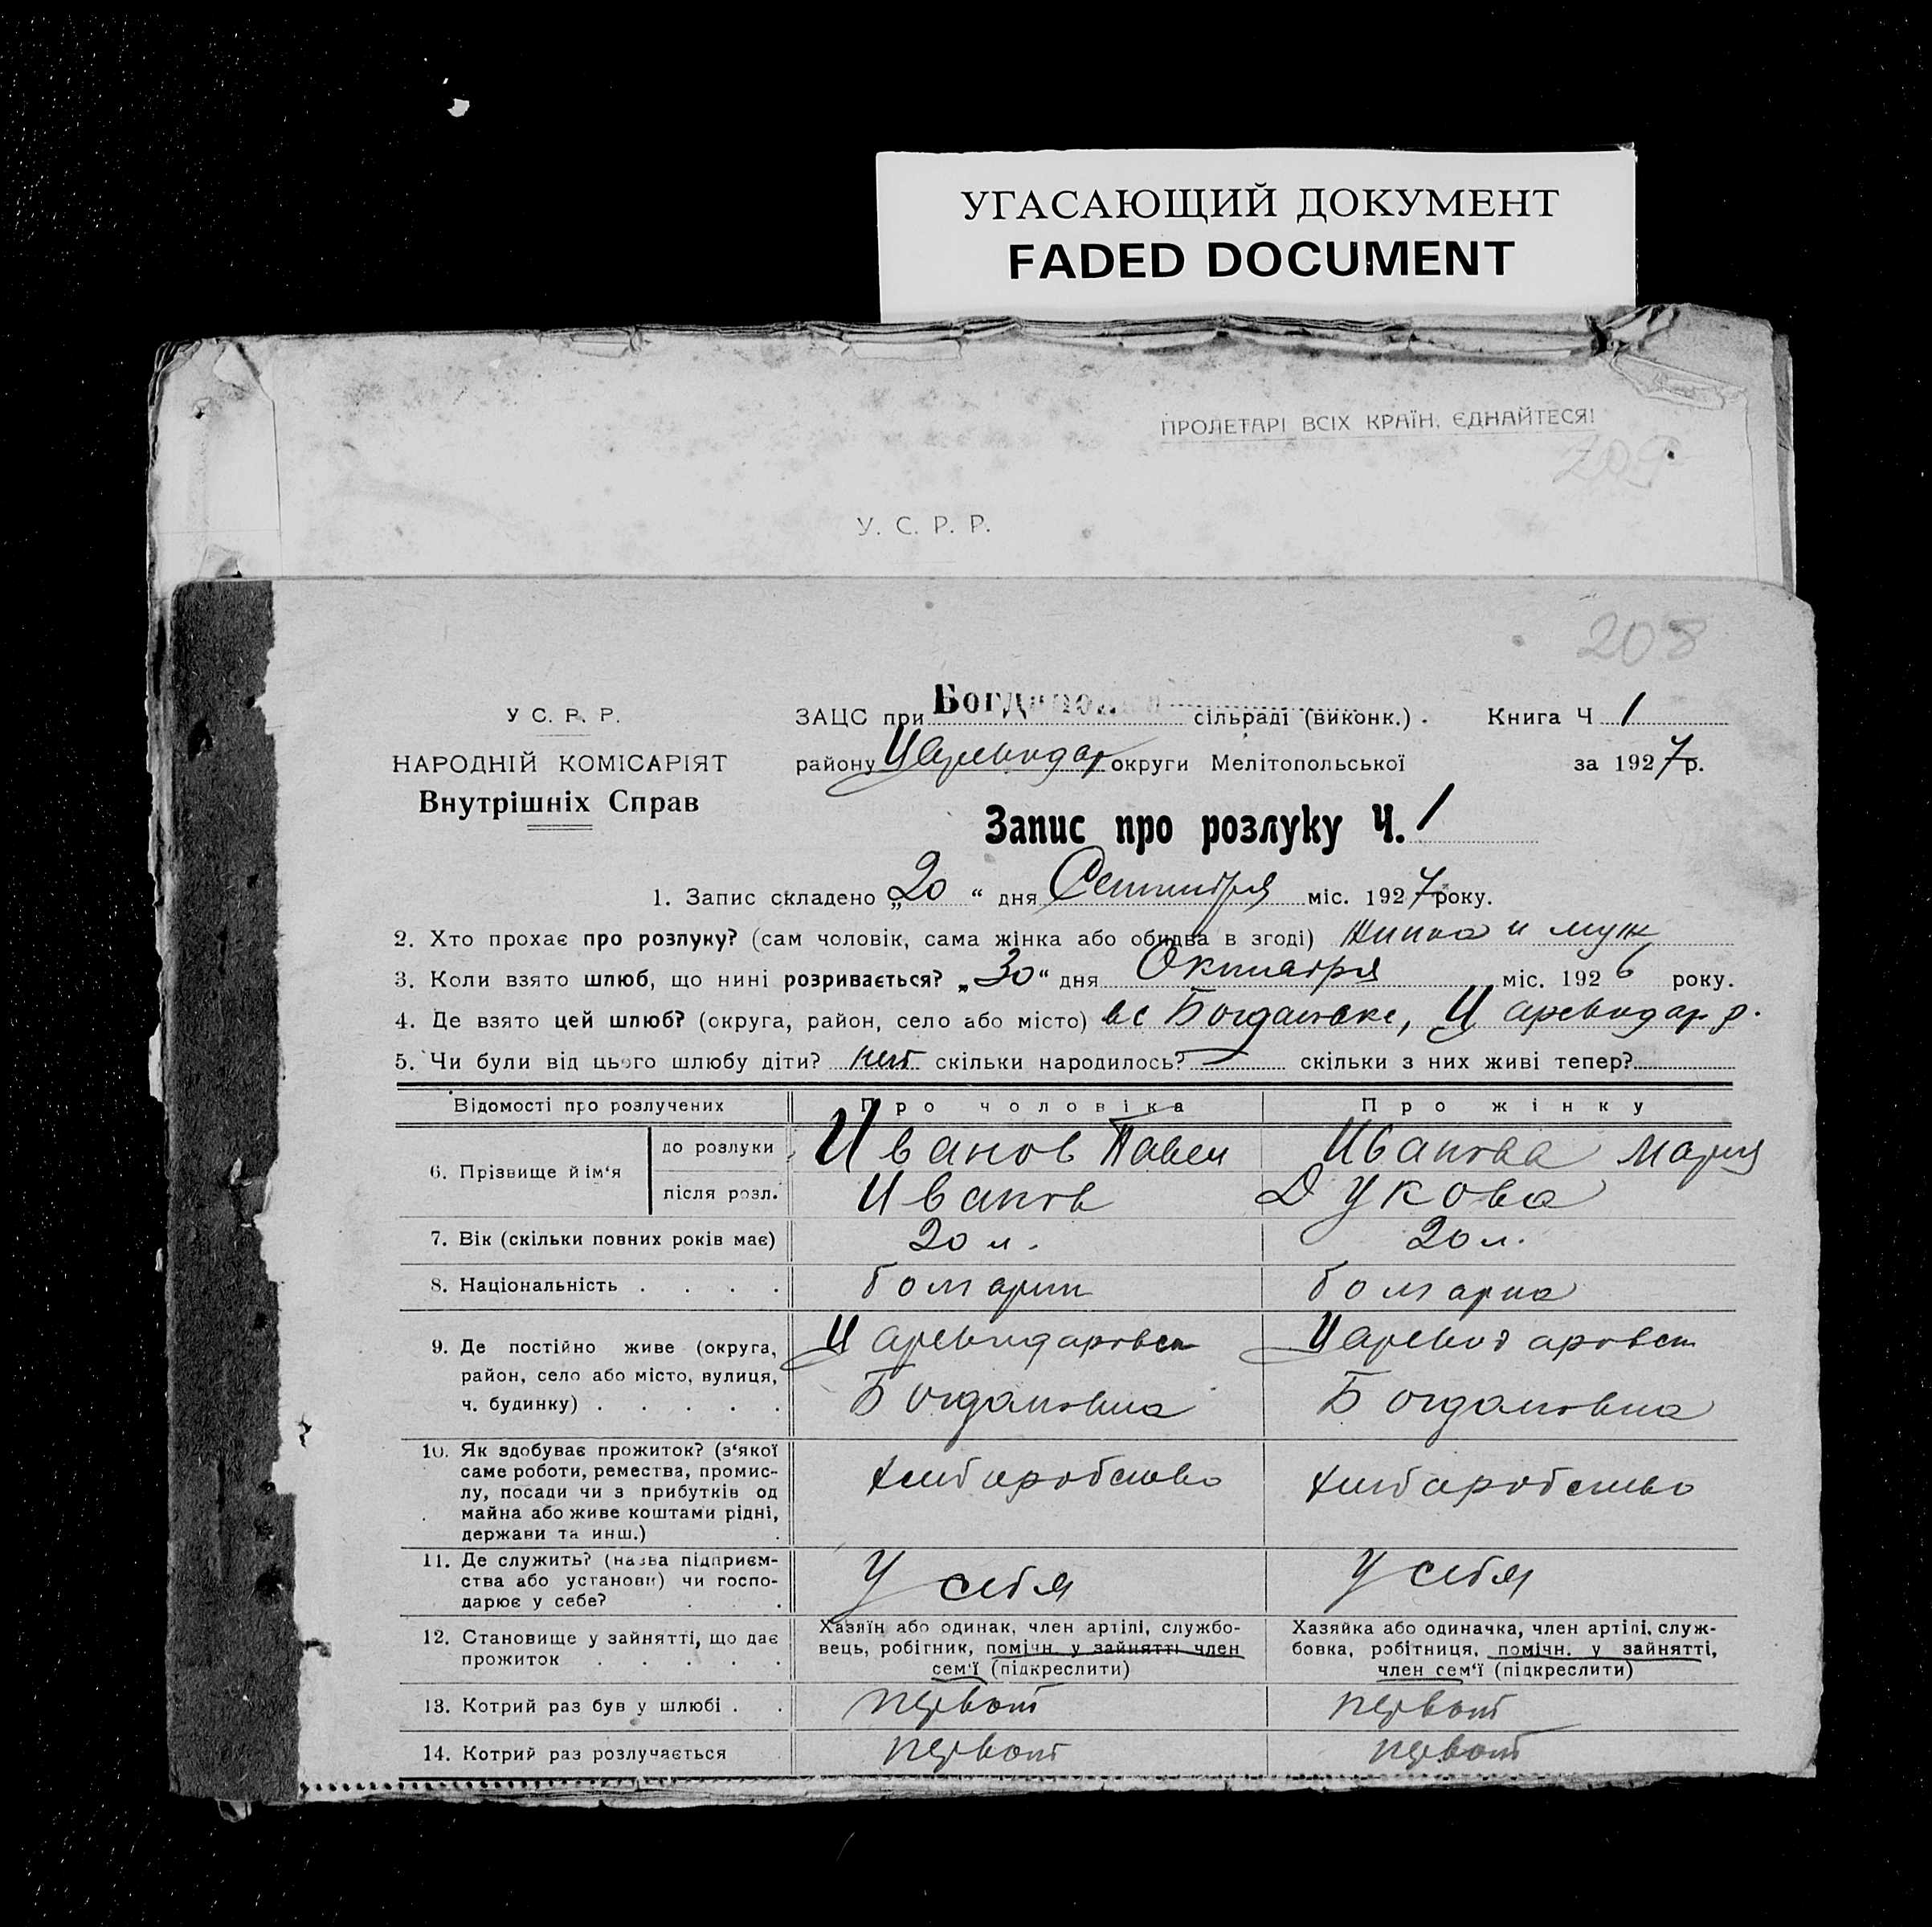 УГАСАЮЩИЙ ДОКУМЕНТ
FADED DOCUMENT
ПРОЛЕТАРІ ВСІХ КРАЇН, ЄДНАЙТЕСЯ!
209
У. С. Р. Р.
208
У С. Р. Р.
НАРОДНІЙ КОМІСАРІЯТ
Внутрішніх Справ
ЗАЦС при сільраді (виконк.) . Книга Ч 1
району Цареводар округи Мелітопольської за 1927 р.
Запис про розлуку Ч. 1
1. Запис складено „20“ дня Сентября міс. 1927 року.
2. Хто прохає про розлуку? (сам чоловік, сама жінка або обидва в згоді) и муж
3. Коли взято шлюб, що нині розривається? „30“ дня Октября міс. 1926 року.
4. Де взято цей шлюб? (округа, район, село або місто) в с Богдановке, Цареводар р.
5. Чи були від цього шлюбу діти? нет скільки народилось? — скільки з них живі тепер?
Відомості про розлучених
Про чоловіка
Про жінку
6. Прізвище й ім‘я
до розлуки
Иванов Павел
Иванова Мария
після розл.
Иванов
Дукова
7. Вік (скільки повних років має)
20 л.
20 л.
8. Національність . . . .
болгарин
болгарка
9. Де постійно живе (округа,
район, село або місто, вулиця,
ч. будинку) . . . . .
Цареводаровск
Богдановка
Цареводаровск
Богдановка
10. Як здобуває прожиток? (з‘якої
саме роботи, ремества, промис-
лу, посади чи з прибутків од
майна або живе коштами рідні,
держави та инш.) .
хлебаробство
хлебаробство
11. Де служить? (назва підприєм-
ства або установи) чи госпо-
дарює у себе? . .
У себя
У себя
12. Становище у зайнятті, що дає
прожиток . . . . .
Хазяїн або одинак, член артілі, службо-
вець, робітник, помічн. у зайнятті член
сем‘ї (підкреслити)
Хазяйка або одиначка, член артілі, служ-
бовка, робітниця, помічн. у зайнятті,
член сем‘ї (підкреслити)
13. Котрий раз був у шлюбі . .
первой
первой
14. Котрий раз розлучається
первой
первой